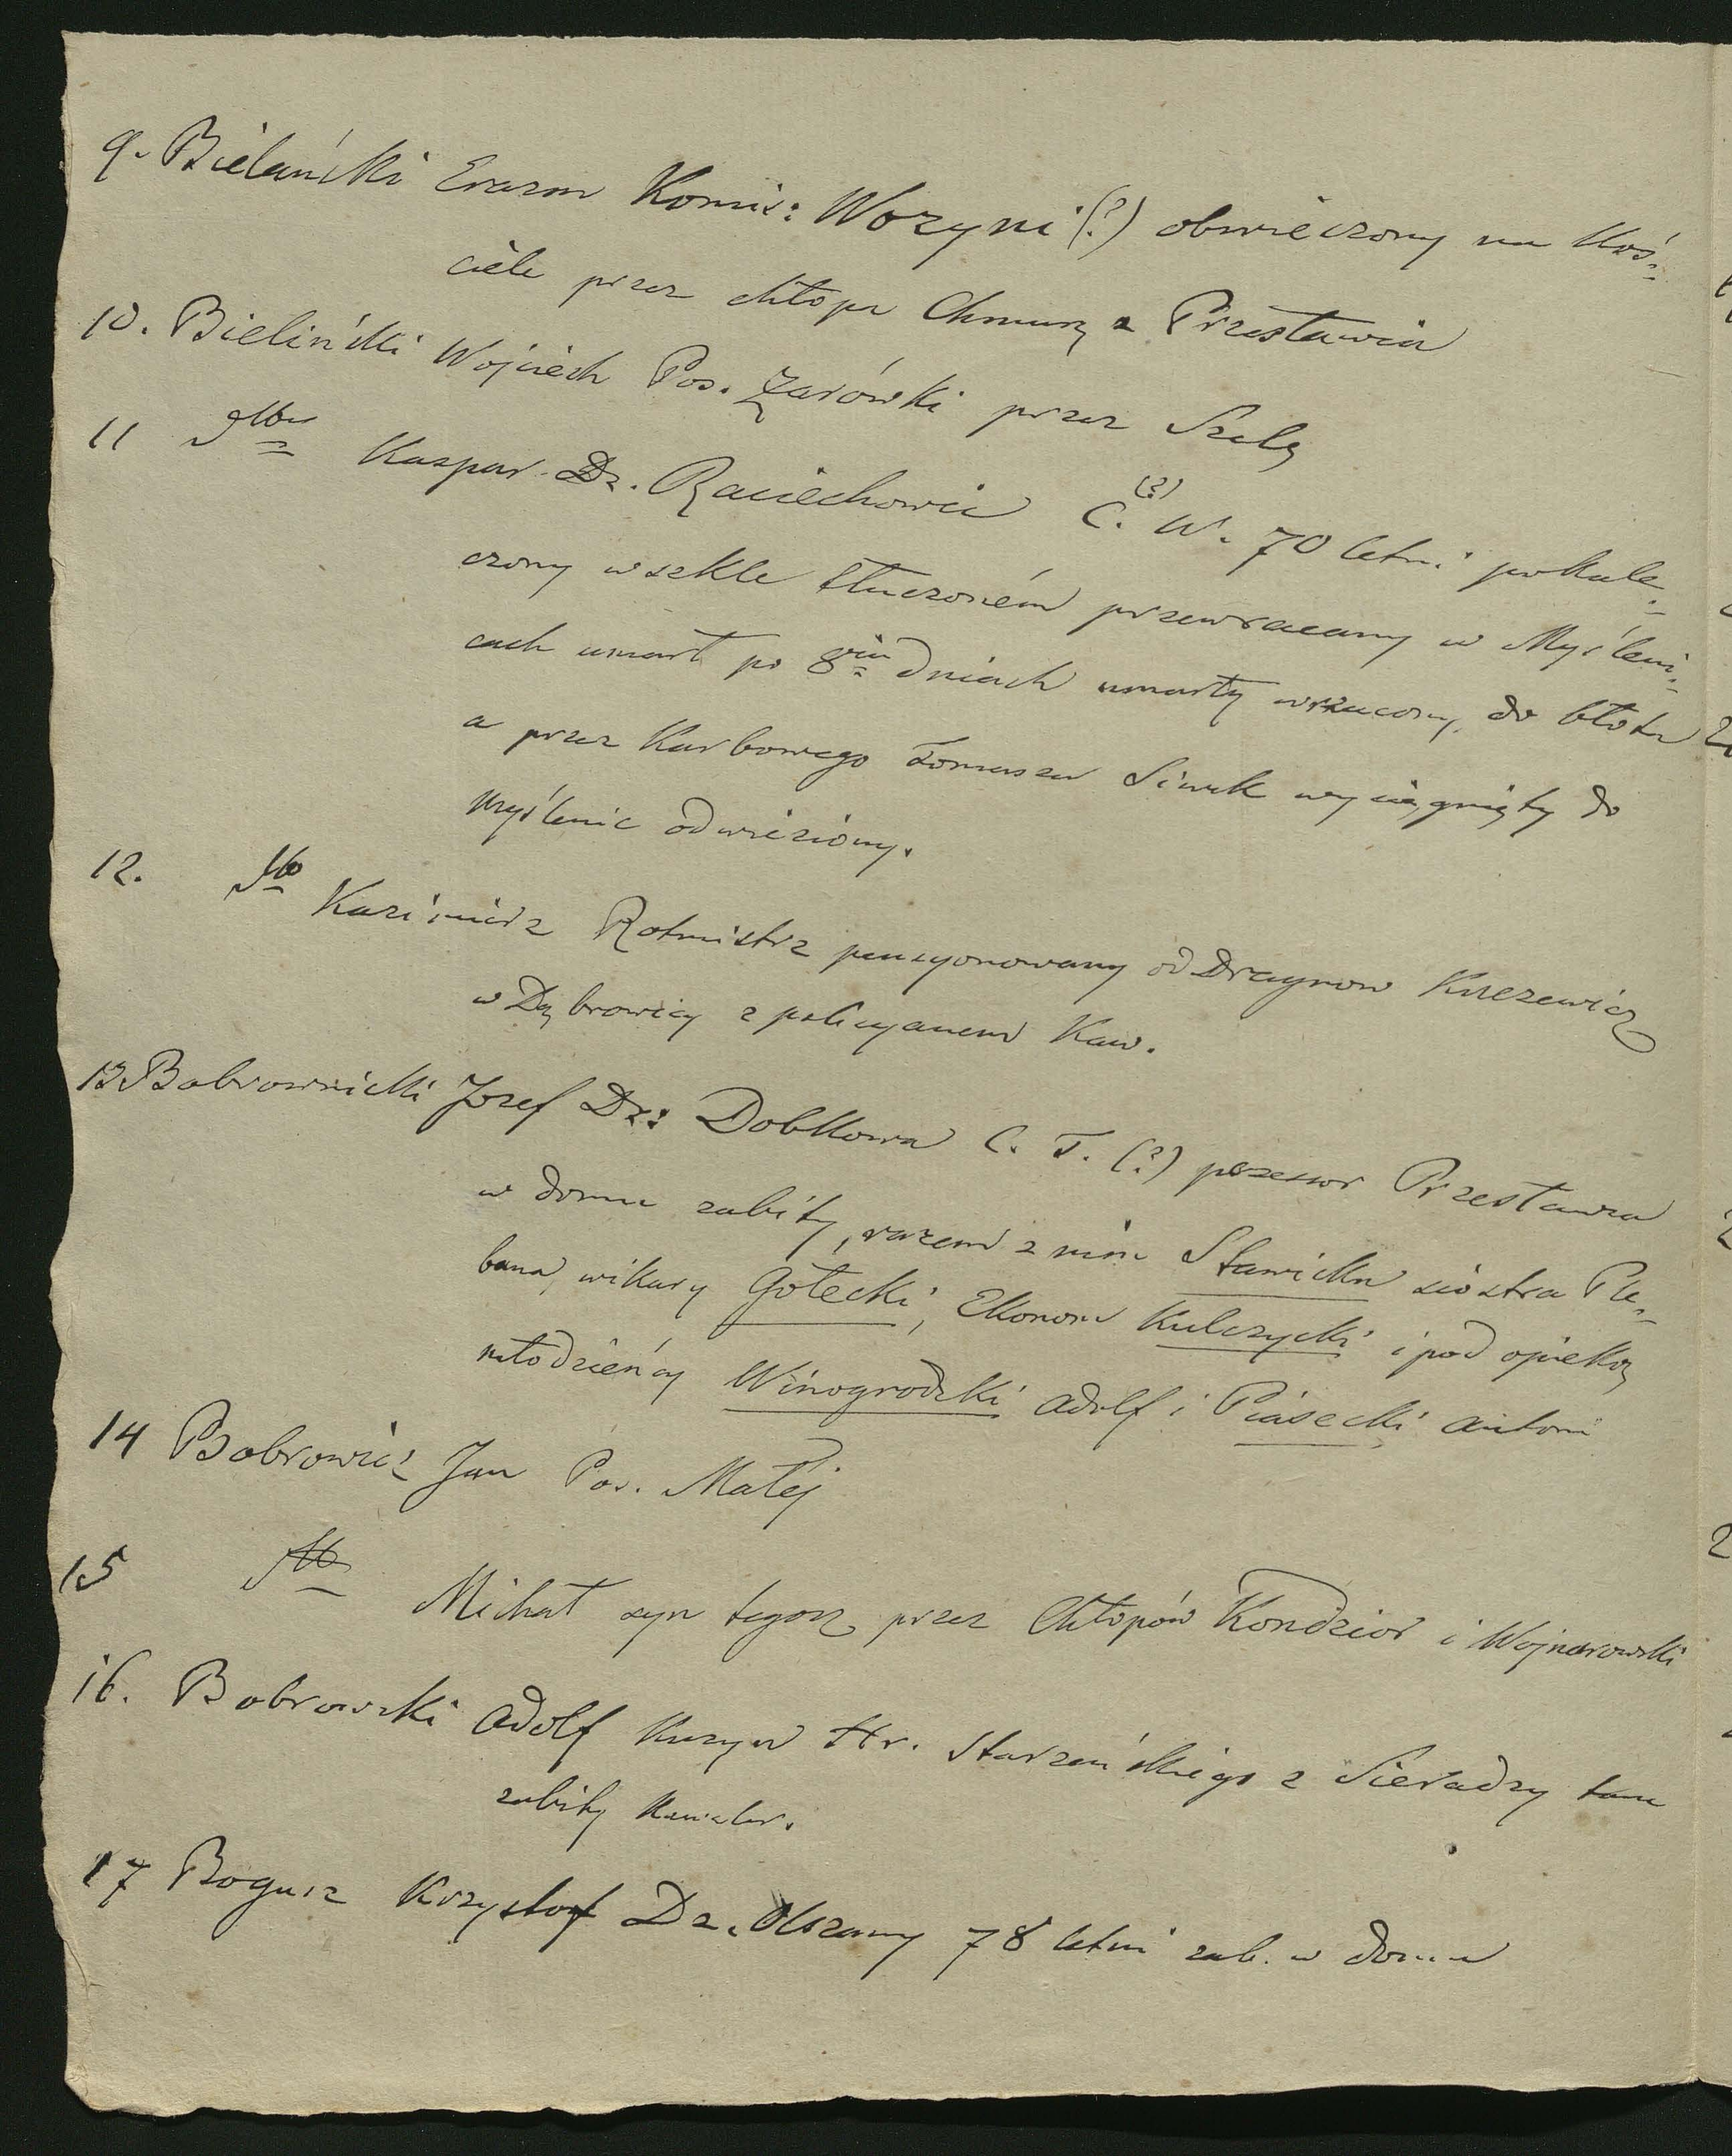 9. Bielański Erazm Komis: Wozyni (?) obwieczony na Koś-
ciele przez chłopa Chmurę z Przesławia
10. Bieliński Wojciech Pos. Żarówki przez Szelę
11 Kaspar Dz. Raciechowic C. (?) W. 70 letni pokale-
czony w szkle tłuczoném przewracany w Myśleni-
cach umarł po 8miu dniach umarły wrzucony do błota
a przez Karbowego Tomasza Siwek wyciągnięty do
Myślenic odwieziony.
12. Kazimierz Rotmistrz pensyonowany od Dragonow Knezewicz
w Dąbrowicy z policyanem Kaw.
13 Bobrownicki Jozef Dz: Dobkowa C. T. (?) posessor Przesławia
w domu zabity, razem z nim Sławicka siostra Ple-
bana, wikary Gołecki, Ekonom Kulczycki i pod opieką
młodzieńcy Winogrodzki Adolf i Piasecki Antoni
14 Bobrowicz Jan Pos. Małej
15 Michał syn tegoż przez Chłopów Kondzior i Wojnarowski
16. Bobrowski Adolf Kuzyn Hr. Starzeńskiego z Sieradzy tam
zabity Kawaler.
17 Bogusz Krzysztof Dz. Olszany 78 letni zab. w domu